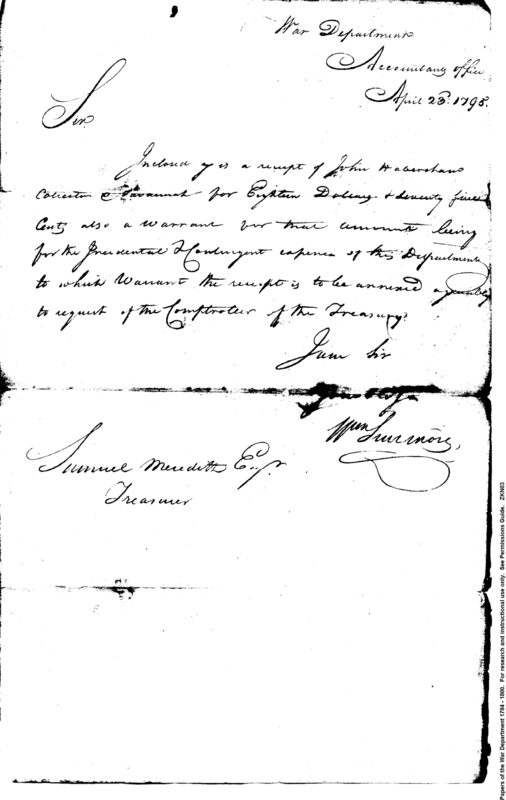 War Department
Accountants office
April 23d. 1798.
Sir
Inclosed is a receipt of John Habersham
Collector Savannah for Eighteen Dollars & seventy five
Cents also a Warrant for that amount being
for the Incidental & Contingent expences of this Department
to which Warrant the receipt is to be annexed agreeably
to request of the Comptroller of the Treasury.
I am Sir
Wm Simmons,
Samuel Meredith Esqr.
Treasurer
Papers of the War Department 1784 - 1800. For research and instructional use only. See Permissions Guide. ZKN03